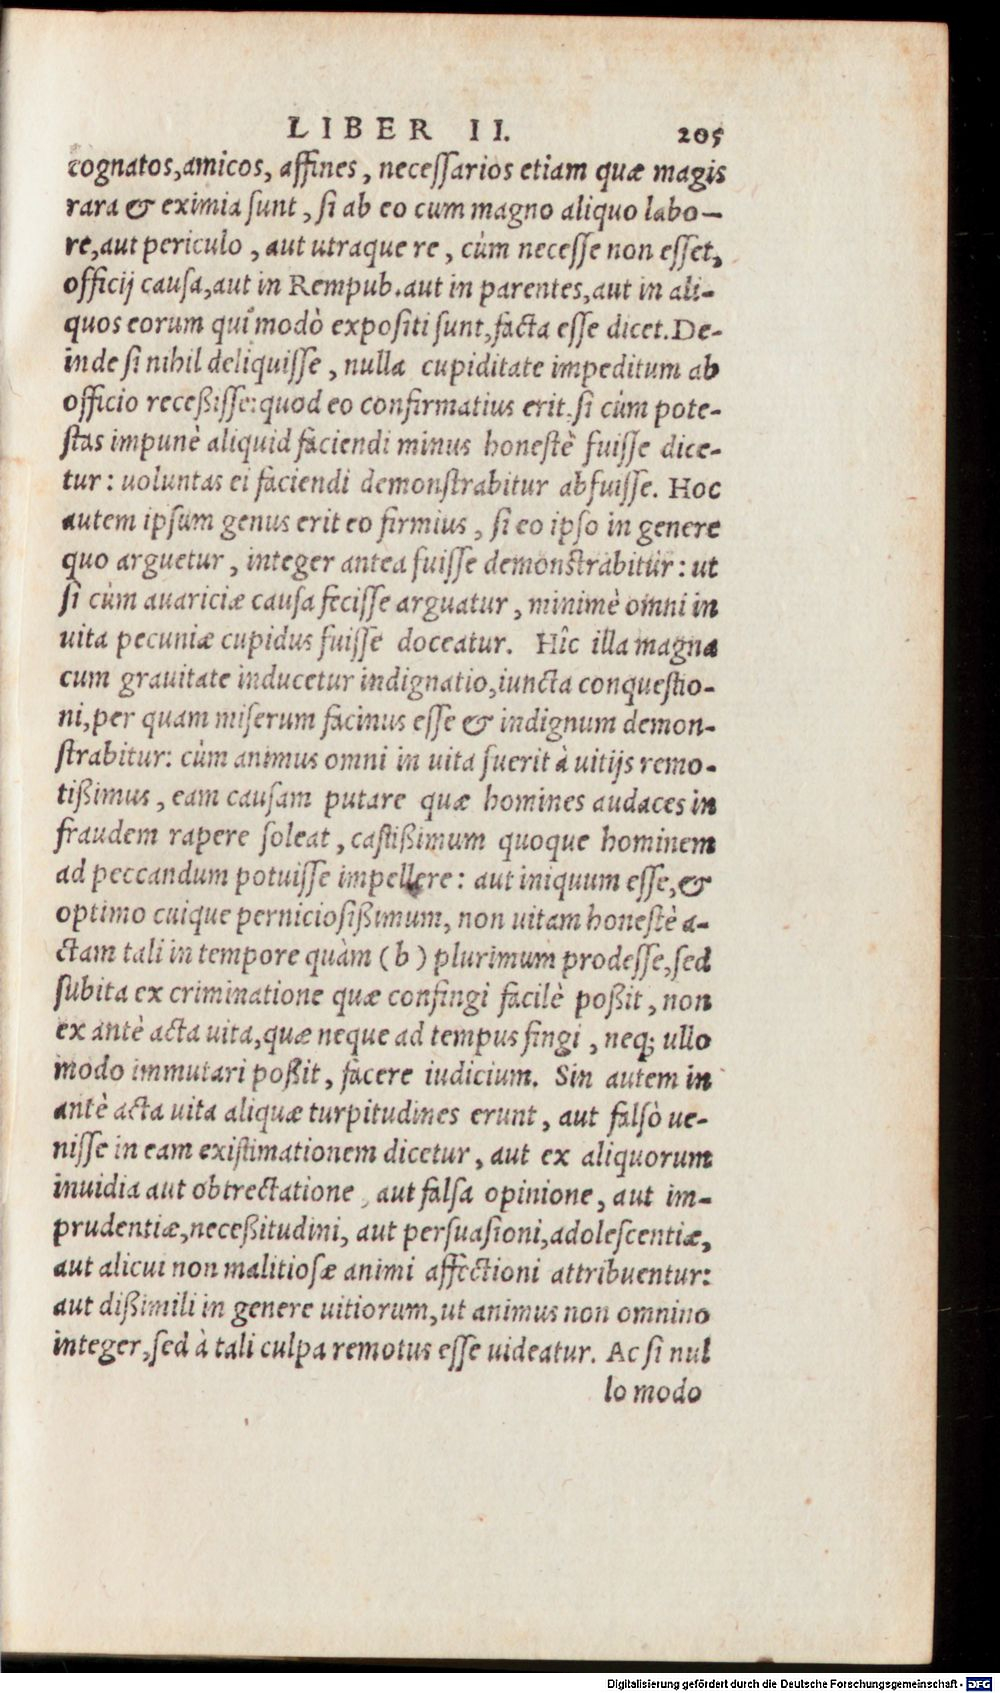 LIBER II. 205
cognatos,amicos, affines, necessarios etiam quæ magis
rara & eximia sunt, si ab eo cum magno aliquo labo—
re,aut periculo, aut utraque re, cùm necesse non esset,
officij causa,aut in Rempub.aut in parentes,aut in ali-
quos eorum qui modò expositi sunt,facta esse dicet.De-
inde si nihil deliquisse, nulla cupiditate impeditum ab
officio recessisse:quod eo confirmatius erit.si cùm pote-
stas impunè aliquid faciendi minus honestè fuisse dice-
tur: uoluntas ei faciendi demonstrabitur abfuisse. Hoc
autem ipsum genus erit eo firmius, si eo ipso in genere
quo arguetur, integer antea fuisse demonstrabitur: ut
si cùm auariciæ causa fecisse arguatur, minimè omni in
uita pecuniæ cupidus fuisse doceatur. Hîc illa magna
cum grauitate inducetur indignatio,iuncta conquestio-
ni,per quam miserum facinus esse & indignum demon-
strabitur: cùm animus omni in uita fuerit à uitijs remo-
tißimus, eam causam putare quæ homines audaces in
fraudem rapere soleat, castißimum quoque hominem
ad peccandum potuisse impellere: aut iniquum esse,&
optimo cuique perniciosißimum, non uitam honestè a-
ctam tali in tempore quàm (b) plurimum prodesse,sed
subita ex criminatione quæ confingi facilè poßit, non
ex antè acta uita,quæ neque ad tempus fingi, neq; ullo
modo immutari poßit, facere iudicium. Sin autem in
antè acta uita aliquæ turpitudines erunt, aut falsò ue-
nisse in eam existimationem dicetur, aut ex aliquorum
inuidia aut obtrectatione, aut falsa opinione, aut im-
prudentiæ,neceßitudini, aut persuasioni,adolescentiæ,
aut alicui non malitiosæ animi affectioni attribuentur:
aut dißimili in genere uitiorum,ut animus non omnino
integer,sed à tali culpa remotus esse uideatur. Ac si nul
lo modo
Digitalisierung gefördert durch die Deutsche Forschungsgemeinschaft - DFG